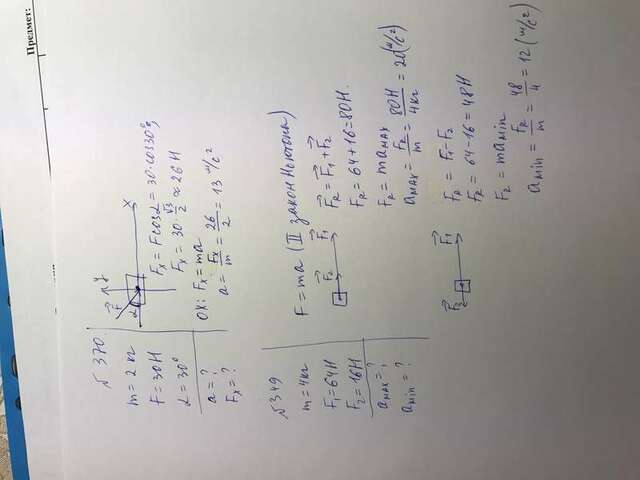 Предмет:
№ 370
m = 2 кг
F = 30Н
α = 30°
a = ?
Fx = ?
y
F
α
x
Fx = Fcosα = 30·cos30°;
Fx = 30·√3/2 ≈ 26 Н
OX: Fx = ma
a = Fx/m = 26/2 = 13 м/с²
№349
m = 4кг
F₁ = 64Н
F₂ = 16Н
amax = ?
amin = ?
F = ma (II закон Ньютона)
F₂ F₁
FR = F₁ + F₂
FR = 64+16=80Н.
FR = mamax
amax = FR/m = 80Н/4кг = 20(м/с²)
F₂ F₁
FR = F₁–F₂
FR = 64–16=48Н
FR = mamin
amin = FR/m = 48/4 = 12 (м/с²)